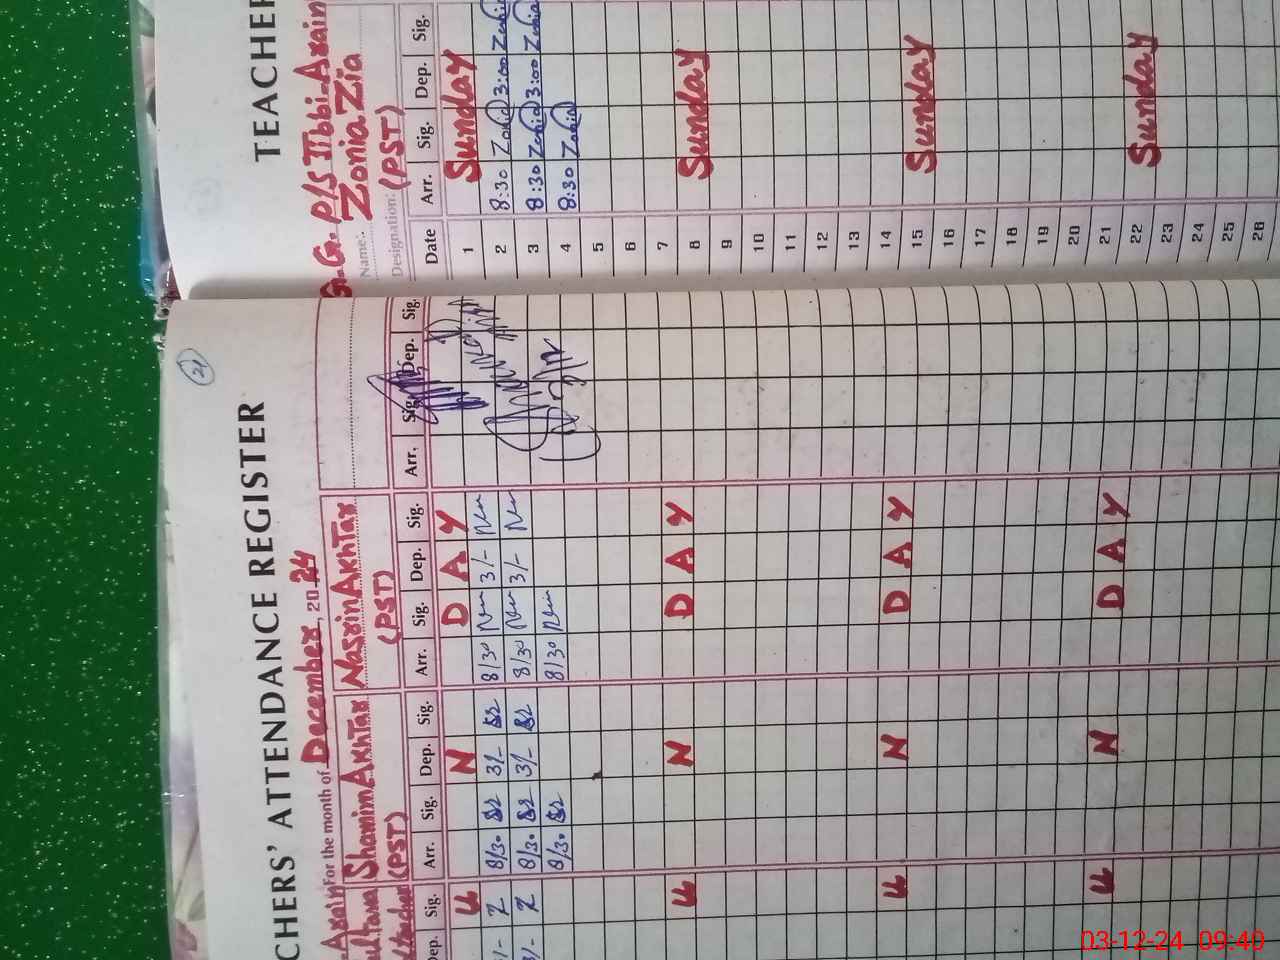 TEACHER
G.G. P/S Tibbi Arain
Name: Zonia Zia
Designation: (PST)
Date Arr. Sig. Dep. Sig.
1 Sunday
2 8:30 Zonia 3:00 Zonia
3 8:30 Zonia 3:00 Zonia
4 8:30 Zonia
5
6
7
8 Sunday
9
10
11
12
13
14
15 Sunday
16
17
18
19
20
21
22 Sunday
23
24
25
26
21
CHERS' ATTENDANCE REGISTER
Arain For the month of December, 2024
Shamim Akhtar Nasrin Akhtar
(PST) (PST)
Dep. Sig. Arr. Sig. Dep. Sig. Arr. Sig. Dep. Sig. Arr. Sig. Dep. Sig.
U N D A Y
8/30 3/- 8/30 3/-
8/30 3/- 8/30 3/-
8/30 8/30
U N D A Y
U N D A Y
U N D A Y
03-12-24 09:40